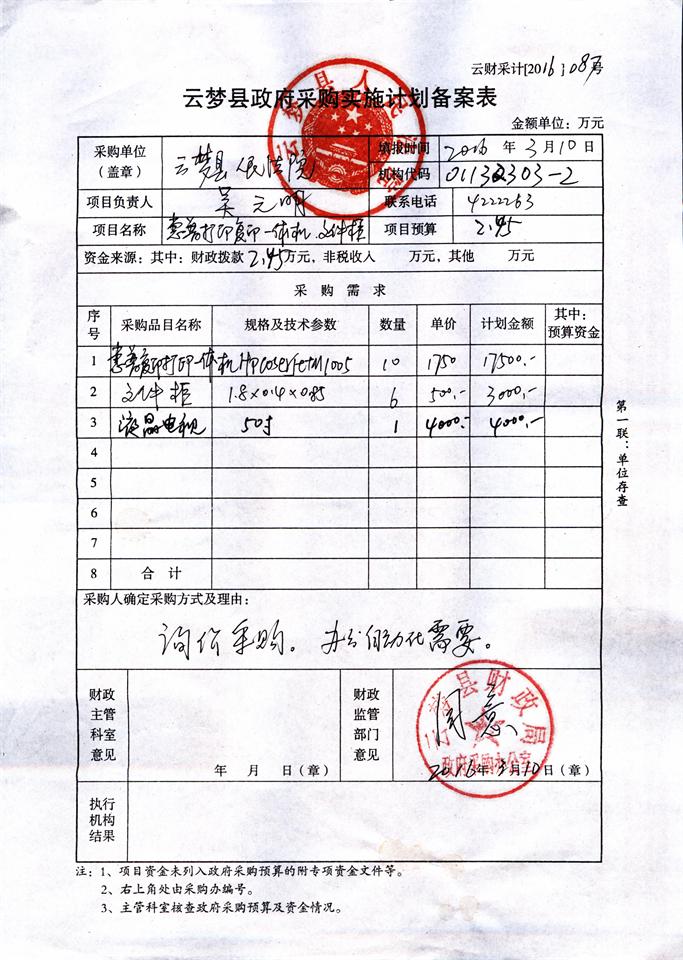 云财采计[2016]08号
云梦县政府采购实施计划备案表
金额单位：万元
采购单位（盖章） 云梦县人民法院 填报时间 2016年3月10日
机构代码 01132303-2
项目负责人 吴元明 联系电话 4222263
项目名称 惠普打印复印一体机.文件柜 项目预算 2.45
资金来源：其中：财政拨款2.45万元，非税收入 万元，其他 万元
采购需求
序号 采购品目名称 规格及技术参数 数量 单价 计划金额 其中：预算资金
1 惠普复印打印一体机 HP 1005 10 1750 17500.-
2 文件柜 1.8×0.4×0.85 6 500.- 3000.-
3 液晶电视 50寸 1 4000.- 4000.-
4
5
6
7
8 合计
第一联：单位存查
采购人确定采购方式及理由：
询价采购。办公自动化需要。
财政主管科室意见 年 月 日（章）
财政监管部门意见 同意 2016年3月10日（章）
县财政局
政府采购办公室
执行机构结果
注：1、项目资金未列入政府采购预算的附专项资金文件等。
2、右上角处由采购办编号。
3、主管科室核查政府采购预算及资金情况。